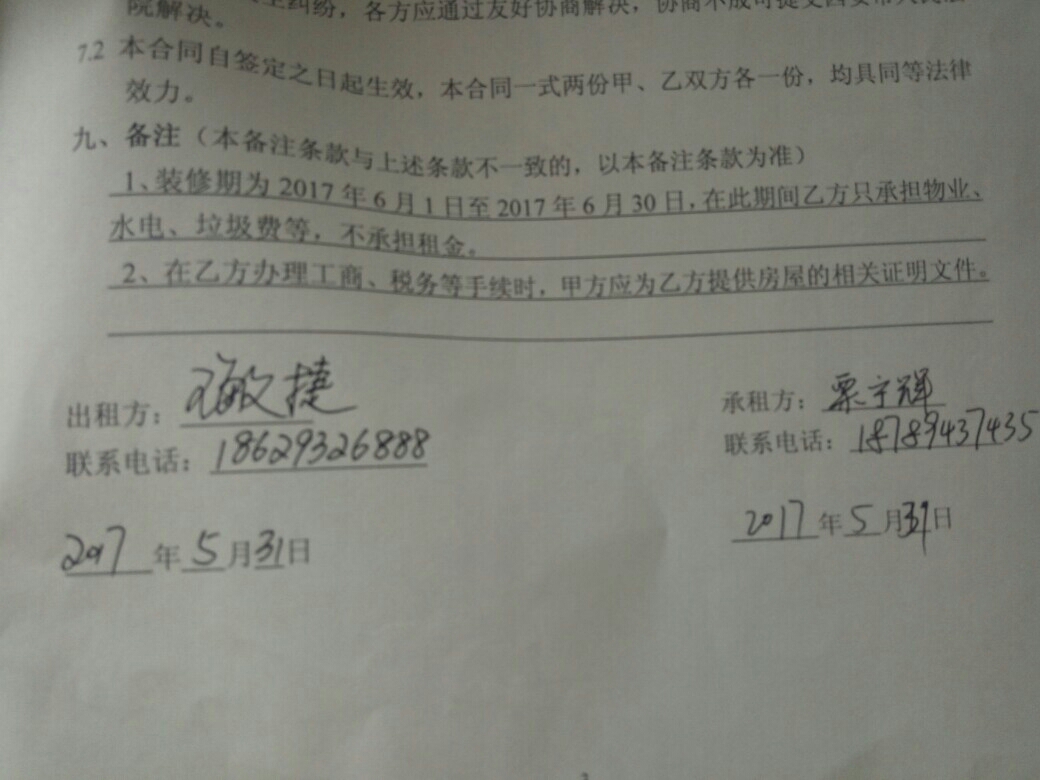 纠纷，各方应通过友好协商解决，协商不成可提交西安市人民法
院解决。
7.2 本合同自签定之日起生效，本合同一式两份甲、乙双方各一份，均具同等法律
效力。
九、备注（本备注条款与上述条款不一致的，以本备注条款为准）
1、装修期为 2017 年 6 月 1 日至 2017 年 6 月 30 日，在此期间乙方只承担物业、
水电、垃圾费等，不承担租金。
2、在乙方办理工商、税务等手续时，甲方应为乙方提供房屋的相关证明文件。
出租方：敏捷
联系电话：18629326888
2017 年 5 月 31 日
承租方：栗宇辉
联系电话：18789437435
2017 年 5 月 31 日